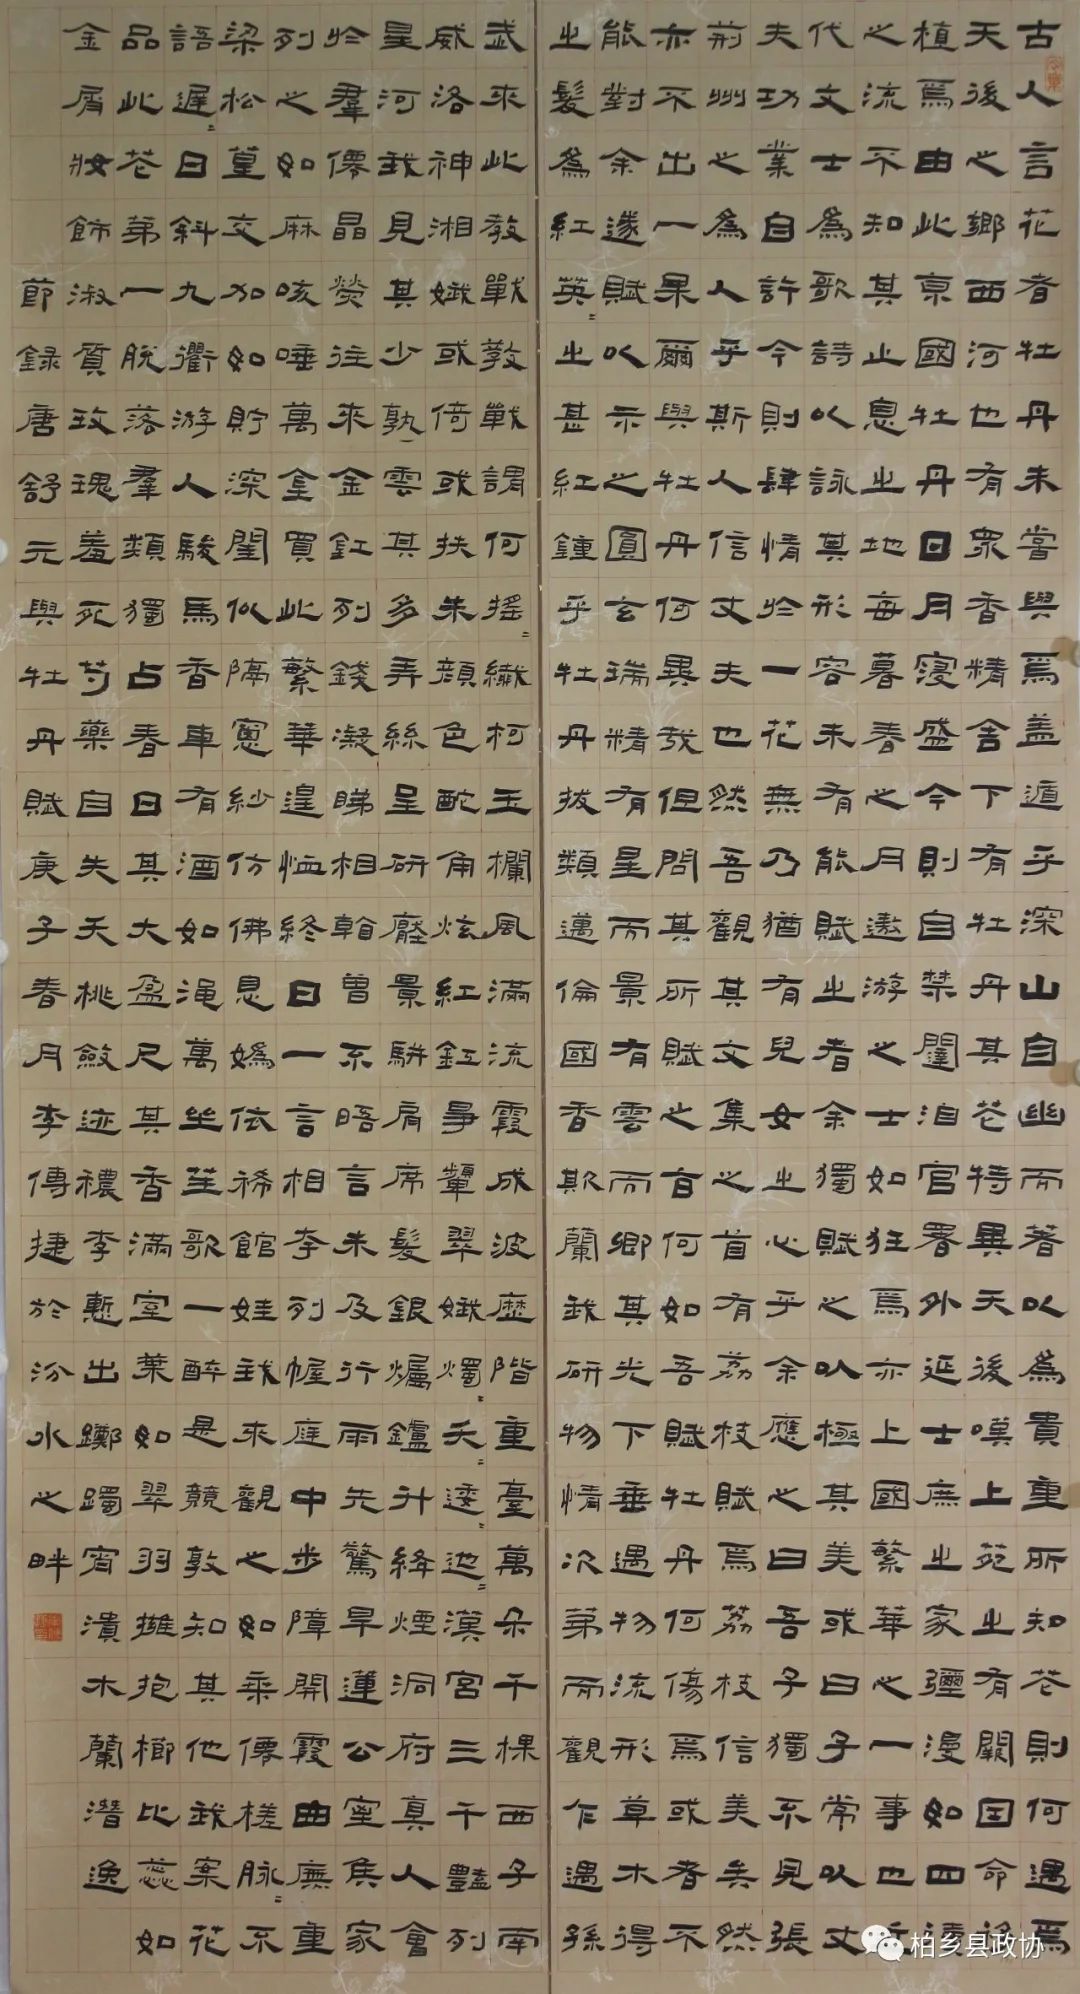 古人言花者牡丹未嘗與焉盖遁乎深山自幽而著以為貴重所知花則何遇焉
天後之鄉西河也有眾香精舍下有牡丹其花特異天後嘆上苑之有闕因命移
植焉由此京國牡丹日月寖盛今則自禁闥洎官署外延士庶之家彌漫如四瀆
之流不知其止息之地每暮春之月遨游之士如狂焉亦上國繁華之一事也近
代文士為歌詩以詠其形容未有能賦之者余獨賦之以極其美或曰子常以丈
夫功業自許今則肆情於一花無乃猶有兒女之心乎余應之曰吾子獨不見張
荊州之為人乎斯人信丈夫也然吾觀其文集之首有荔枝賦焉荔枝信美矣然
亦不出一果爾與牡丹何異哉但問其所賦之旨何如吾賦牡丹何傷焉或者不
能對余遂賦以示之圓玄瑞精有星而景有雲而卿其光下垂遇物流形草木得
之髮為紅英〻之甚紅鍾乎牡丹拔類邁倫國香欺蘭我研物情次第而觀乍遇孫
武來此教戰教戰謂何搖〻纖柯玉欄風滿流霞成波歷階重臺萬朵千棵西子南
威洛神湘娥或倚或扶朱顏色酡角炫紅釭爭顰翠娥燭〻夭〻逶〻迤〻漢宮三千豔列
星河我見其少孰雲其多弄絲呈研壓景駢肩席髮銀爥鑪升絳煙洞府真人會
於羣僊晶熒往來金釭列錢凝睇相看曾不晤言未及行雨先驚旱蓮公室侯家
列之如麻咳唾萬金買此繁華遑恤終日一言相李列幄庭中步障開霞曲廡重
梁松篁交加如貯深閨似隔窗紗仿佛息媯依稀館娃我來觀之如乘僊槎脉〻不
語遲〻日斜九衢游人駿馬香車有酒如澠萬坐笙歌一醉是競孰知其他我案花
品此花第一脫落羣類獨占春日其大盈尺其香滿室葉如翠羽擁抱櫛比蕊如
金屑妝飾淑質玫瑰羞死芍藥自失夭桃斂迹穠李慚出躑躅宵潰木蘭潛逸
節錄唐舒元與牡丹賦庚子春月李傳捷於汾水之畔
柏乡县政协